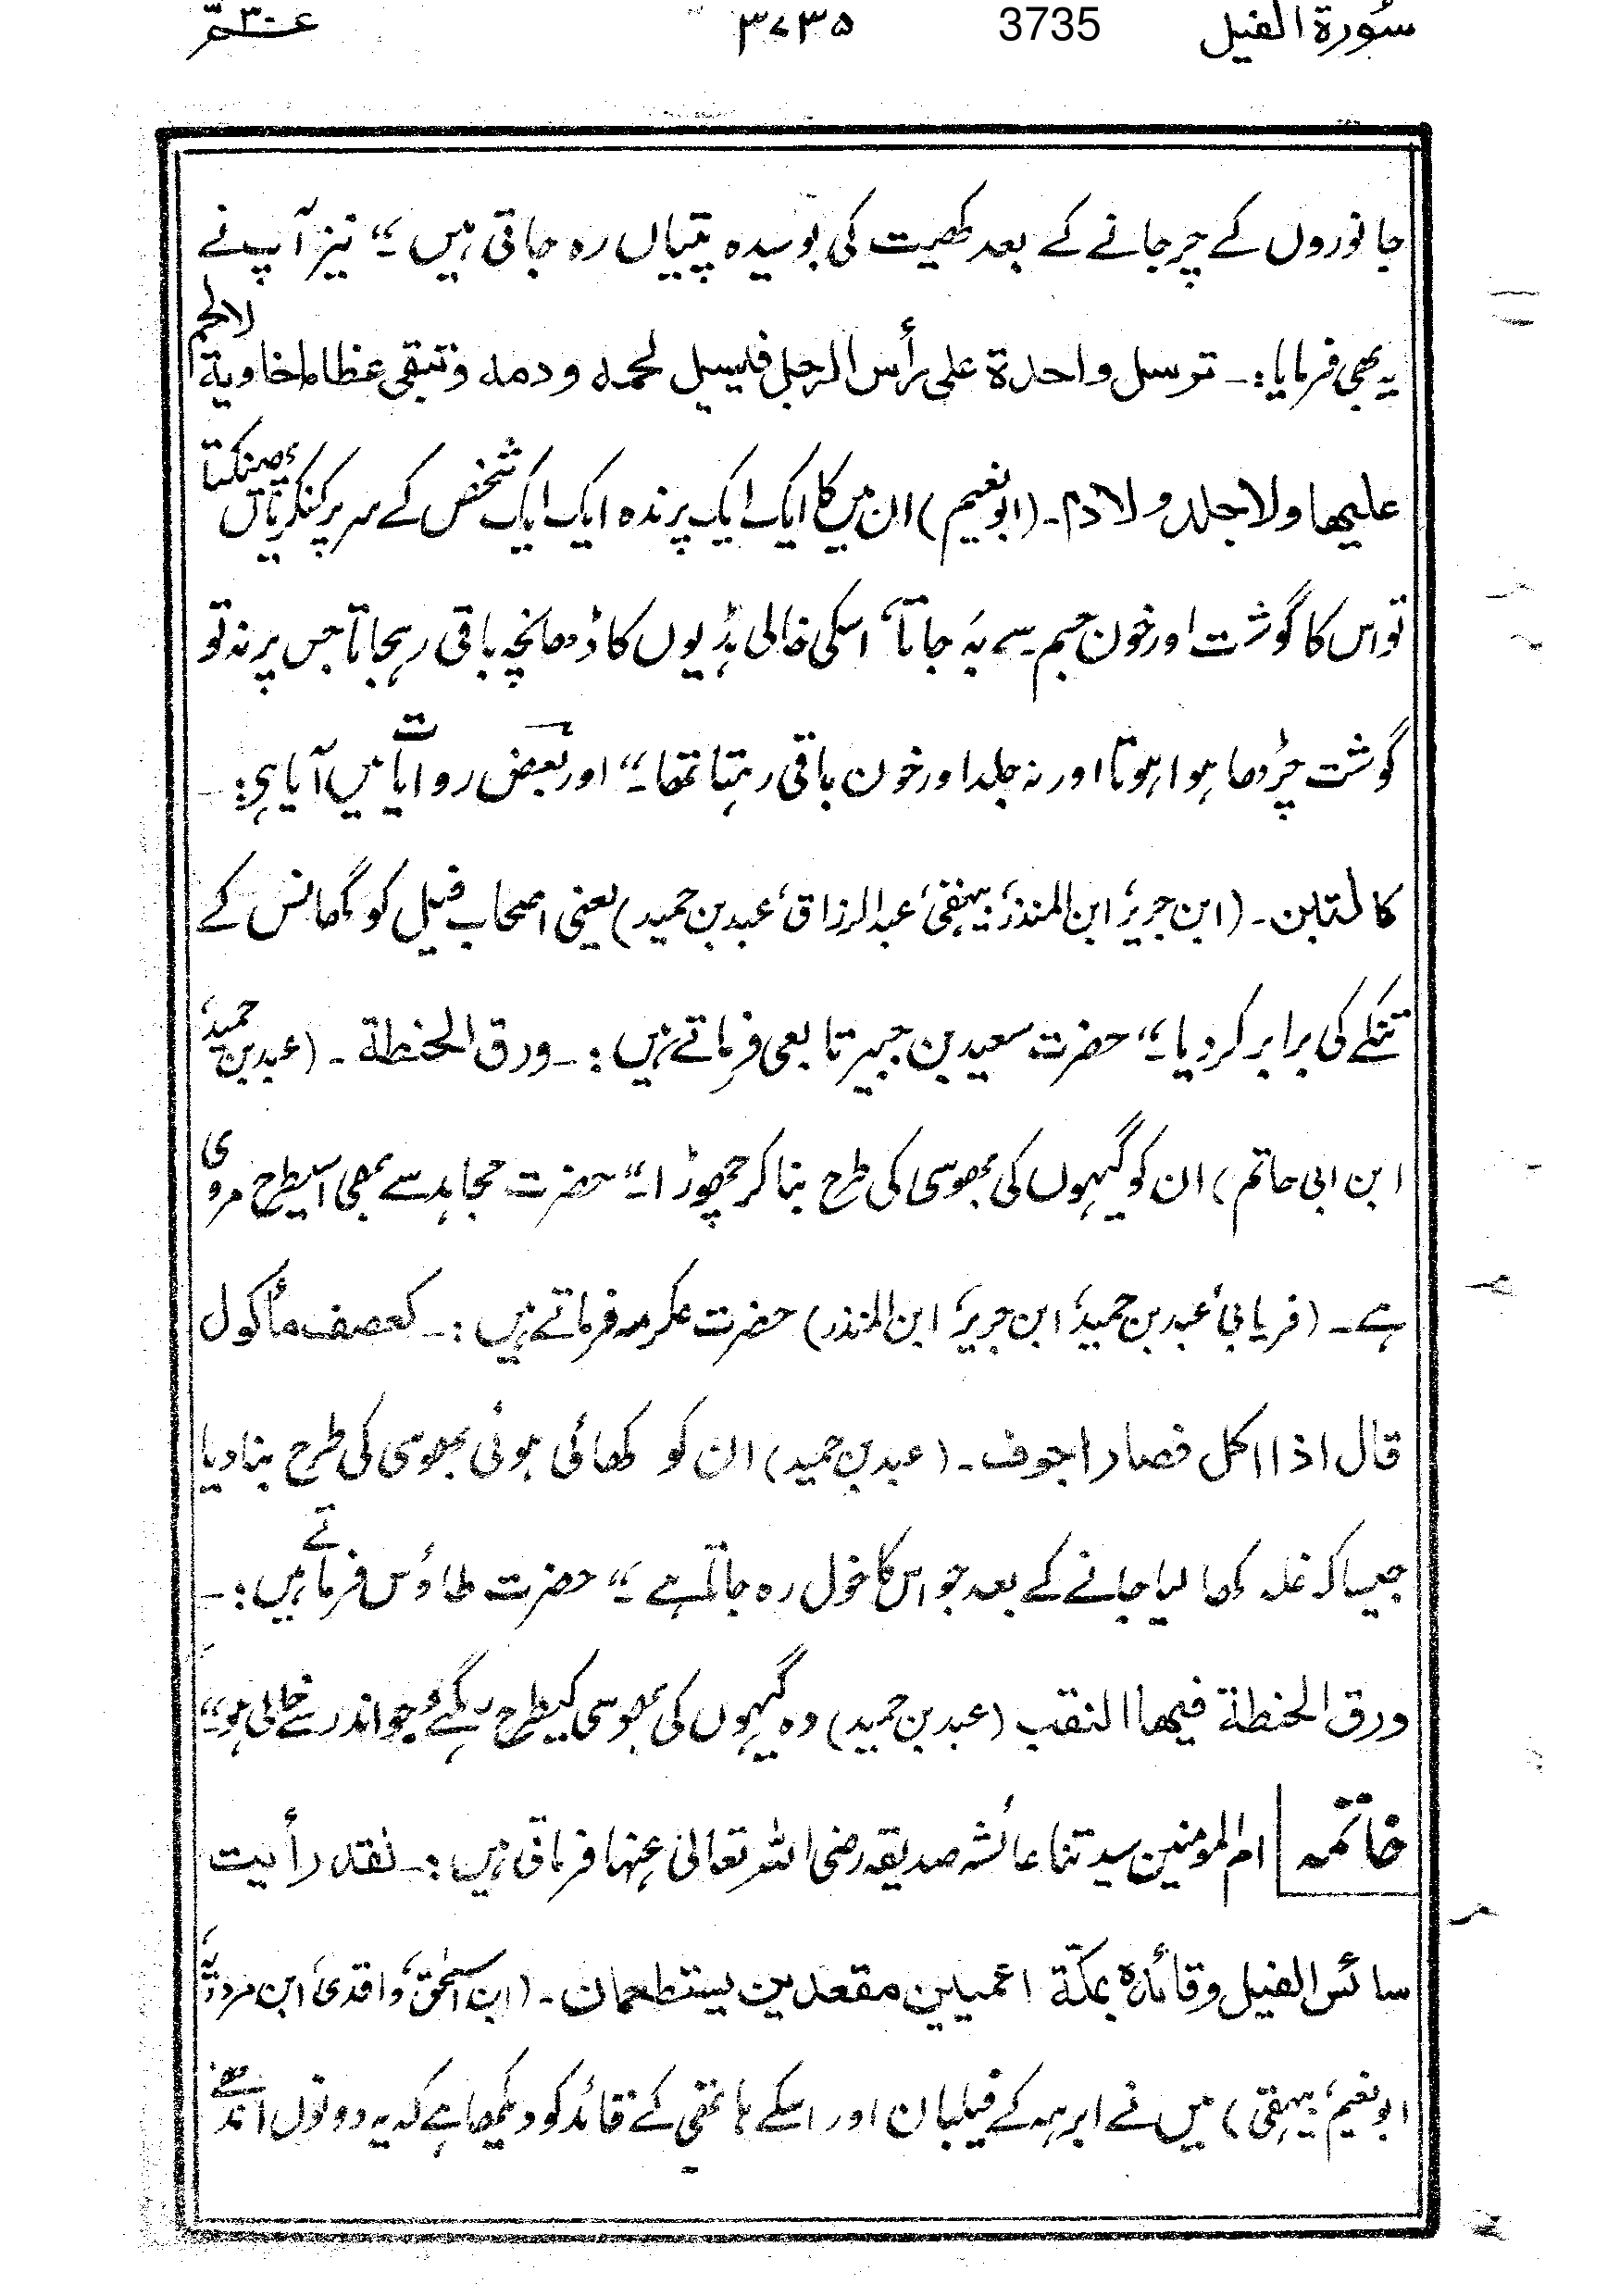 سُورة الفیل 3735 ۳۷۳۵ عـــمّ ۳۰
جانوروں کے چر جانے کے بعد کھیت کی بوسیدہ پتیاں رہ جاتی ہیں ۔" نیز آپ نے
یہ بھی فرمایا :۔ ترسل واحدة علی رأس الرجل فیسیل لحمه و دمه و تبقی عظاما خاویة لا لحم
علیھا ولا جلد ولا دم ۔ (ابونعیم) ان میں کا ایک ایک پرندہ ایک ایک شخص کے سر پر کنکریاں پھینکتا
تو اس کا گوشت اور خون جسم سے بہَ جاتا، اسکی خالی ہڈیوں کا ڈھانچہ باقی رہجاتا جس پر نہ تو
گوشت چڑھا ہوا ہوتا اور نہ جلد اور خون باقی رہتا تھا ۔" اور بعض روایات میں آیا ہی :۔
کالتبن ۔ (ابن جریر، ابن المنذر، بیہقی، عبدالرزاق، عبد بن حمید) یعنی اصحاب فیل کو گھانس کے
تنکے کی برابر کر دیا ۔" حضرت سعید بن جبیر تابعی فرماتے ہیں :۔ ورق الحنطة ۔ (عبد بن حمید،
ابن ابی حاتم) ان کو گیہوں کی بھوسی کی طرح بنا کر چھوڑا ۔" حضرت مجاہد سے بھی اسیطرح مروی
ہے ۔ (فریابی، عبد بن حمید، ابن جریر، ابن المنذر) حضرت عکرمہ فرماتے ہیں :۔ کعصف مأکول
قال اذا اکل فصار اجوف ۔ (عبد بن حمید) ان کو کھائی ہوئی بھوسی کی طرح بنا دیا
جیسا کہ غلہ کھا لیا جانے کے بعد جو اس کا خول رہ جاتا ہے ۔" حضرت طاؤس فرماتے ہیں :۔
ورق الحنطة فیھا النقب (عبد بن حمید) وہ گیہوں کی بھوسی کیطرح ہو گئے جو اندر سے خالی ہو ۔"
خاتمہ ام المومنین سیدتنا عائشہ صدیقہ رضی اللہ تعالیٰ عنہا فرماتی ہیں :۔ لقد رأیت
سائس الفیل وقائدہ بمکّة اعمیین مقعدین یستطعمان ۔ (ابن اسحٰق، واقدی، ابن مردویہ،
ابونعیم، بیہقی) میں نے ابرہہ کے فیلبان اور اسکے ہاتھی کے قائد کو دیکھا ہے کہ یہ دونوں اندھے